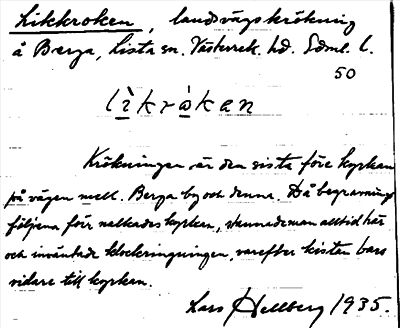 Likkroken, landsvägskrökning
å Berga, Lista sn. Västerrek. hd. Sdml. l.
50
lìkràkan
Krökningen är den sista före kyrkan
på vägen mell. Berga by och denna. Då begravnings
följena förr nalkades kyrkan, stannade man alltid här
och inväntade klockringningen, varefter kistan bars
vidare till kyrkan.
Lars Hellberg 1935.